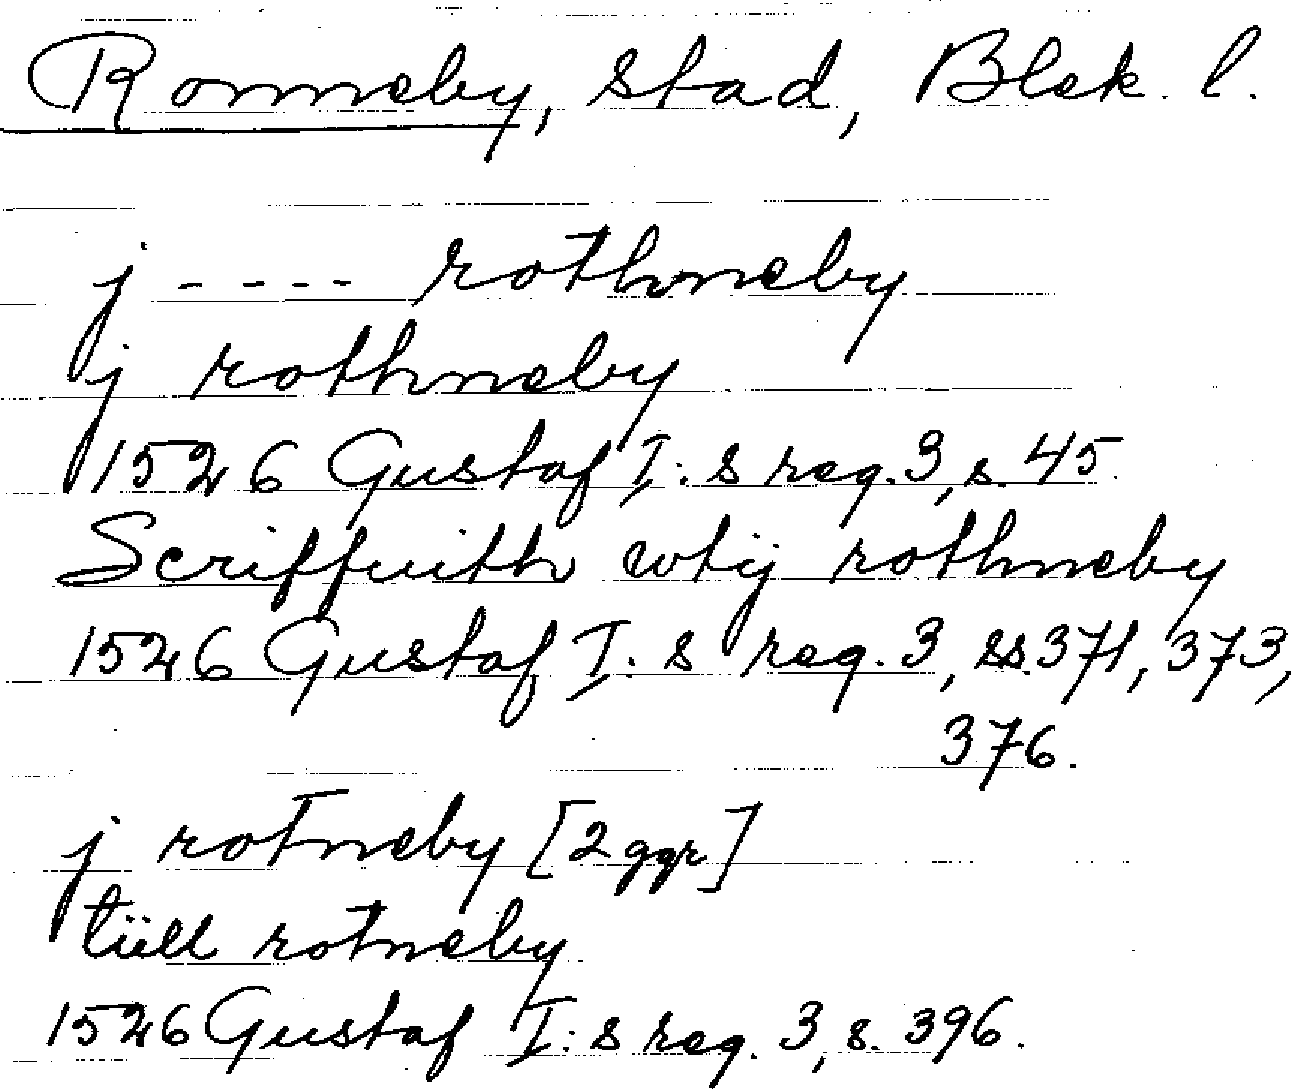 Ronneby, stad, Blek. l.
j - - - - rothneby
j rothneby
1526 Gustaf I:s reg. 3, s. 45.
Scriffuith wtij rothneby
1526 Gustaf I:s reg. 3, ss. 371, 373,
376.
j rotneby [2 ggr]
tiill rotneby
1526 Gustaf I:s reg. 3, s. 396.